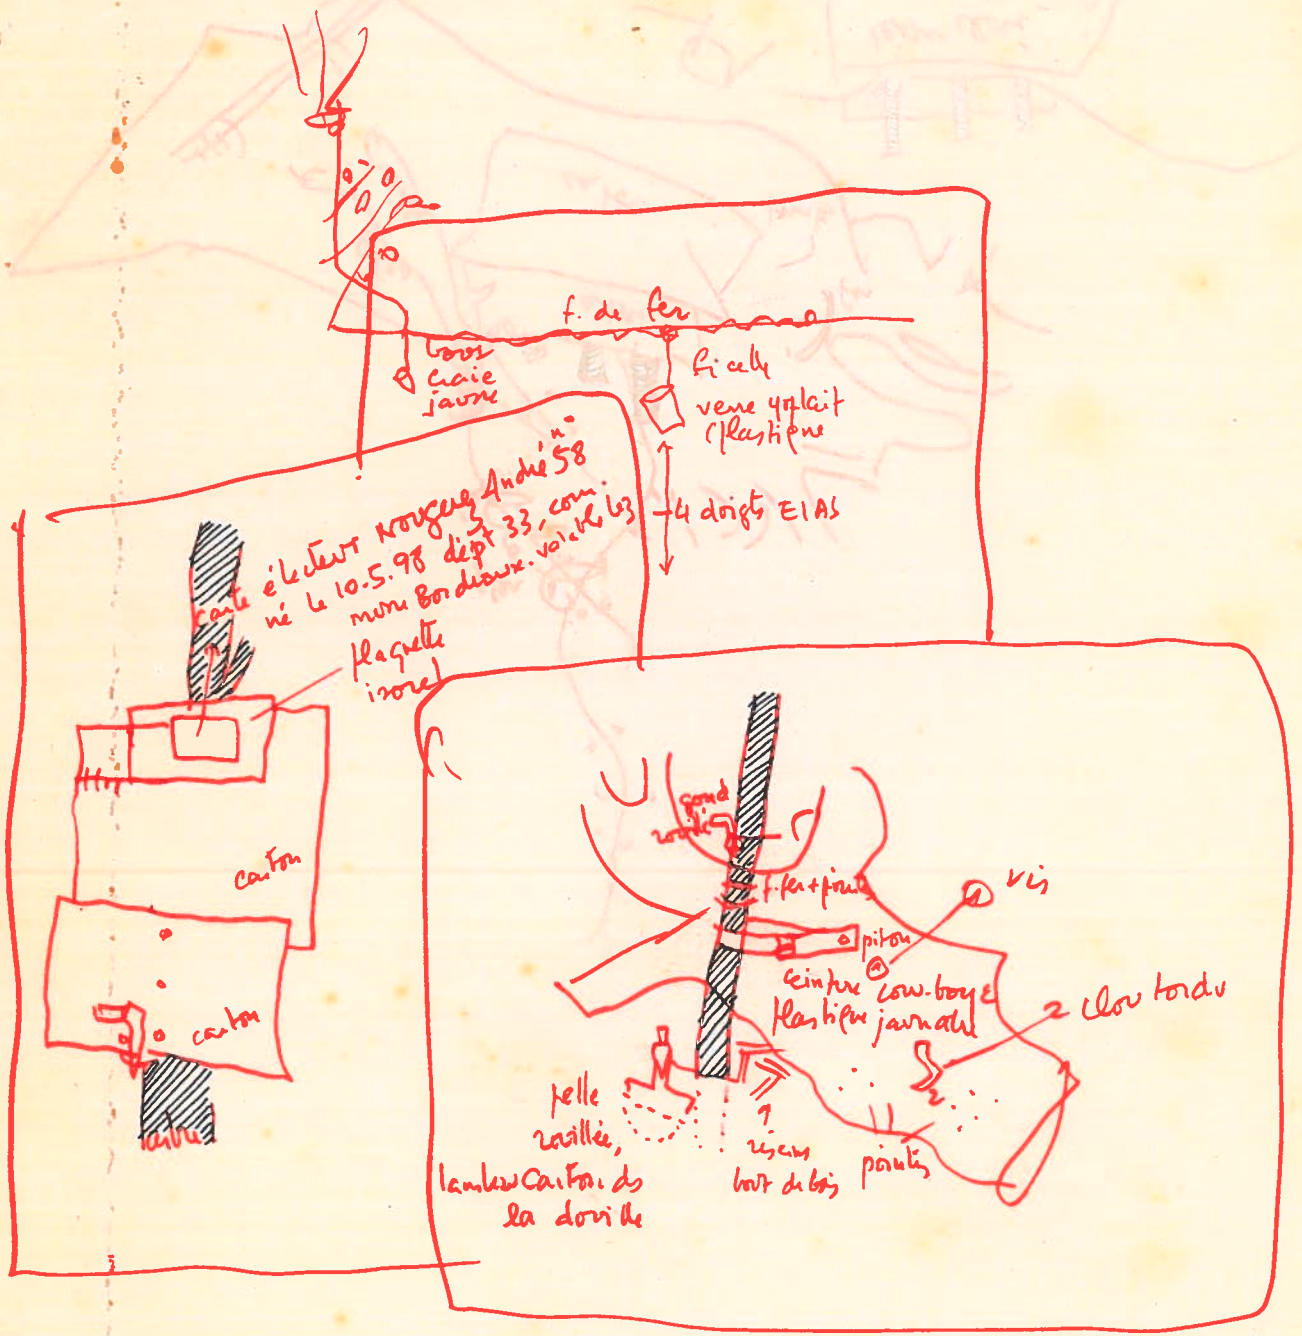 f. de fer
bout
craie
jaune
ficelle
verre yoplait
(plastique
4 doigts EIAS
carte électeur Nougerey André n° 58
né le 10.5.98 dépt 33, com.
mune Bordeaux. valable 63
plaquette
isorel
carton
carton
arbre
gond
rouillé
f. fer + pointes
piton
vis
ceinture cow-boy
plastique jaunatre
clou tordu
pelle
rouillée,
lambeau carton ds
la douille
bout de bois
pointes